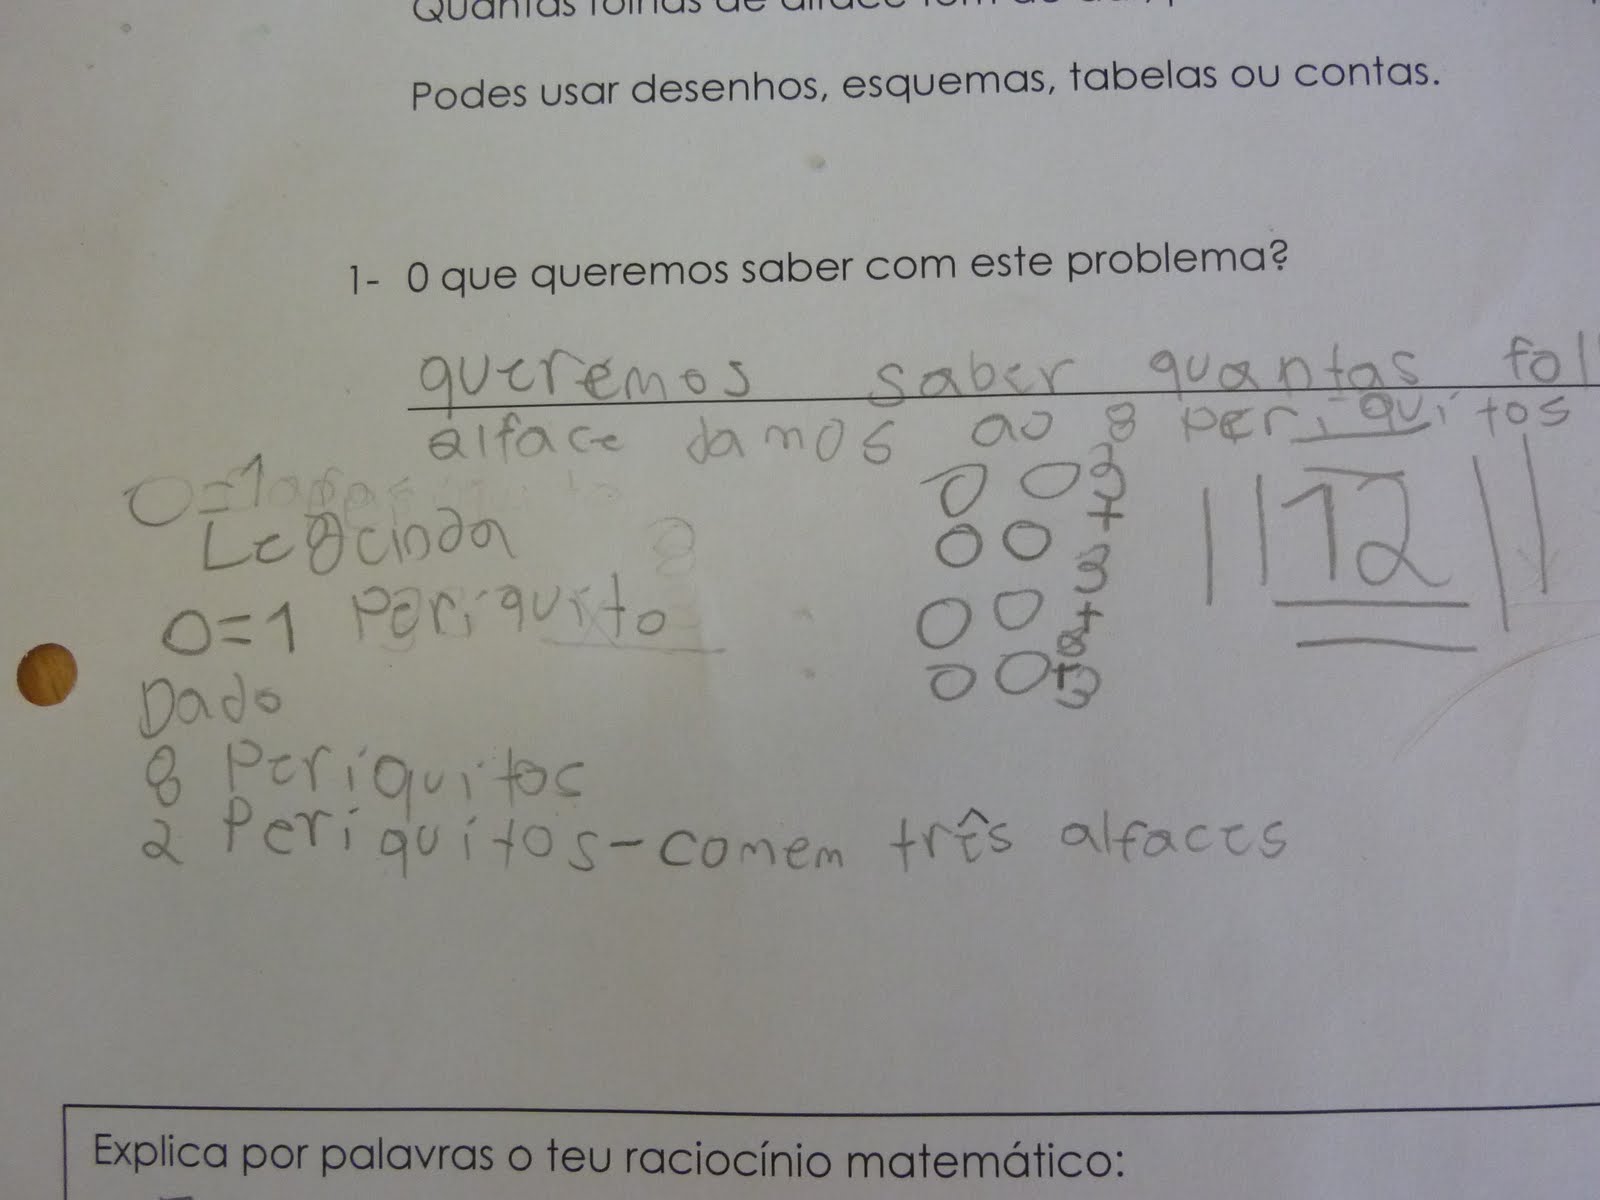 Quantas folhas de alface tem
Podes usar desenhos, esquemas, tabelas ou contas.
1- O que queremos saber com este problema?
queremos saber quantas fol
alface damos ao 8 periquitos
0=1
Legcinda
0=1 Periquito
Dado
8 Periquitos
2 Periquitos-comem três alfaces
0 0 3
+
0 0 3
+
0 0 3
0 0 +3
12
Explica por palavras o teu raciocínio matemático: